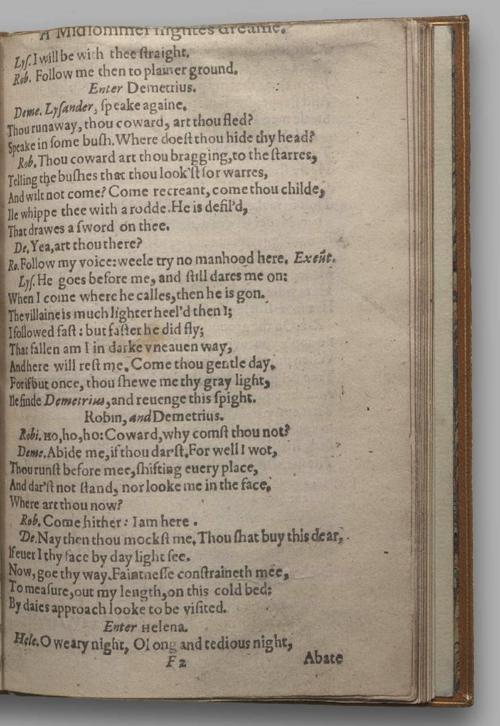 A Midsommer nightes dreame.
Lys. I will be with thee ſtraight.
Rob. Follow me then to plainer ground.
Enter Demetrius.
Deme. Lyſander, ſpeake againe.
Thou runaway, thou coward, art thou fled?
Speake in ſome buſh. Where doeſt thou hide thy head?
Rob. Thou coward art thou bragging, to the ſtarres,
Telling the buſhes that thou look'ſt for warres,
And wilt not come? Come recreant, come thou childe,
Ile whippe thee with a rodde. He is defil'd,
That drawes a ſword on thee.
De. Yea, art thou there?
Ro. Follow my voice: weele try no manhood here. Exeūt.
Lyſ. He goes before me, and ſtill dares me on:
When I come where he calles, then he is gon.
The villaine is much lighter heel'd then I;
I followed faſt: but faſter he did fly;
That fallen am I in darke vneauen way,
And here will reſt me. Come thou gentle day.
For if but once, thou ſhewe me thy gray light,
Ile finde Demetrius, and reuenge this ſpight.
Robin, and Demetrius.
Robi. Ho, ho, ho: Coward, why comſt thou not?
Deme. Abide me, if thou dar'ſt. For well I wot,
Thou runſt before mee, ſhifting euery place,
And dar'ſt not ſtand, nor looke me in the face.
Where art thou now?
Rob. Come hither: I am here.
De. Nay then thou mockſt me. Thou ſhat buy this dear,
If euer I thy face by day light ſee.
Now, goe thy way. Faintneſſe conſtraineth mee,
To meaſure, out my length, on this cold bed:
By daies approach looke to be viſited.
Enter Helena.
Hele. O weary night, O long and tedious night,
F2 Abate